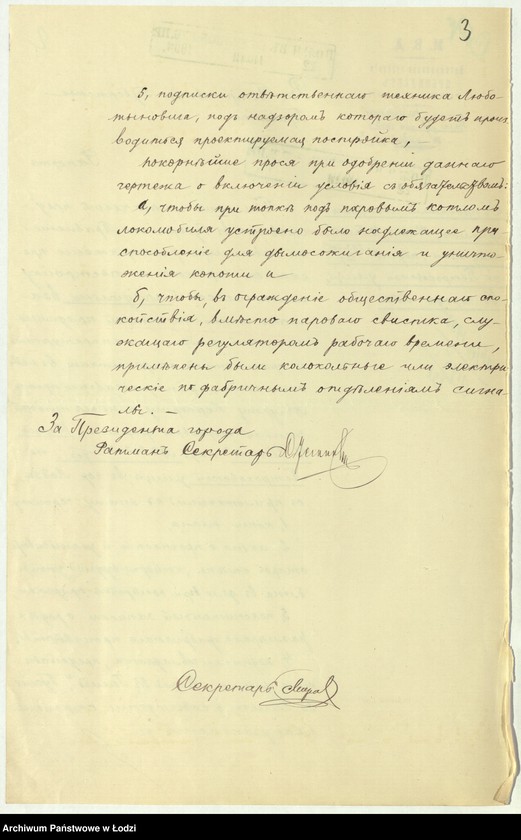 3
5, подписки отвѣтственнаго техника Любо-
тыновича, подъ надзоромъ котораго будетъ произ
водиться проектируемая постройка,
покорнѣйше прося при одобреніи даннаго
чертежа о включеніи условія съ обязательствомъ:
а, чтобы при топкѣ подъ паровымъ котломъ
локомобиля устроено было надлежащее при
способленіе для дымосожиганія и уничто-
женія копоти и
б, чтобы въ огражденіе общественнаго спо-
койствія, вмѣсто пароваго свистка, слу-
жащаго регуляторомъ рабочаго времени,
примѣнены были колокольные или электри
ческіе по фабричнымъ отдѣленіямъ сигна-
лы. —
За Президента города
Ратманъ Секретарь
Секретарь
Archiwum Państwowe w Łodzi